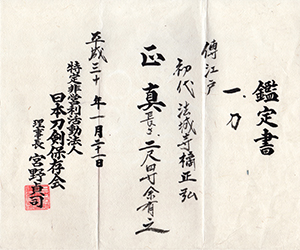 鑑定書
一、刀
傳江戸
初代 法城寺橘正弘
正真 長さ、二尺四寸余有之
平成三十年一月二十一日
特定非営利活動法人
日本刀剣保存会
理事長 宮野貞司